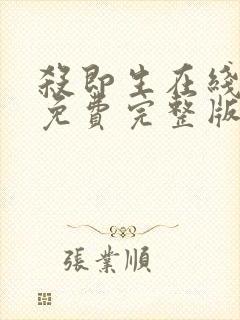 殺即生在綫
免費完整版
張業順